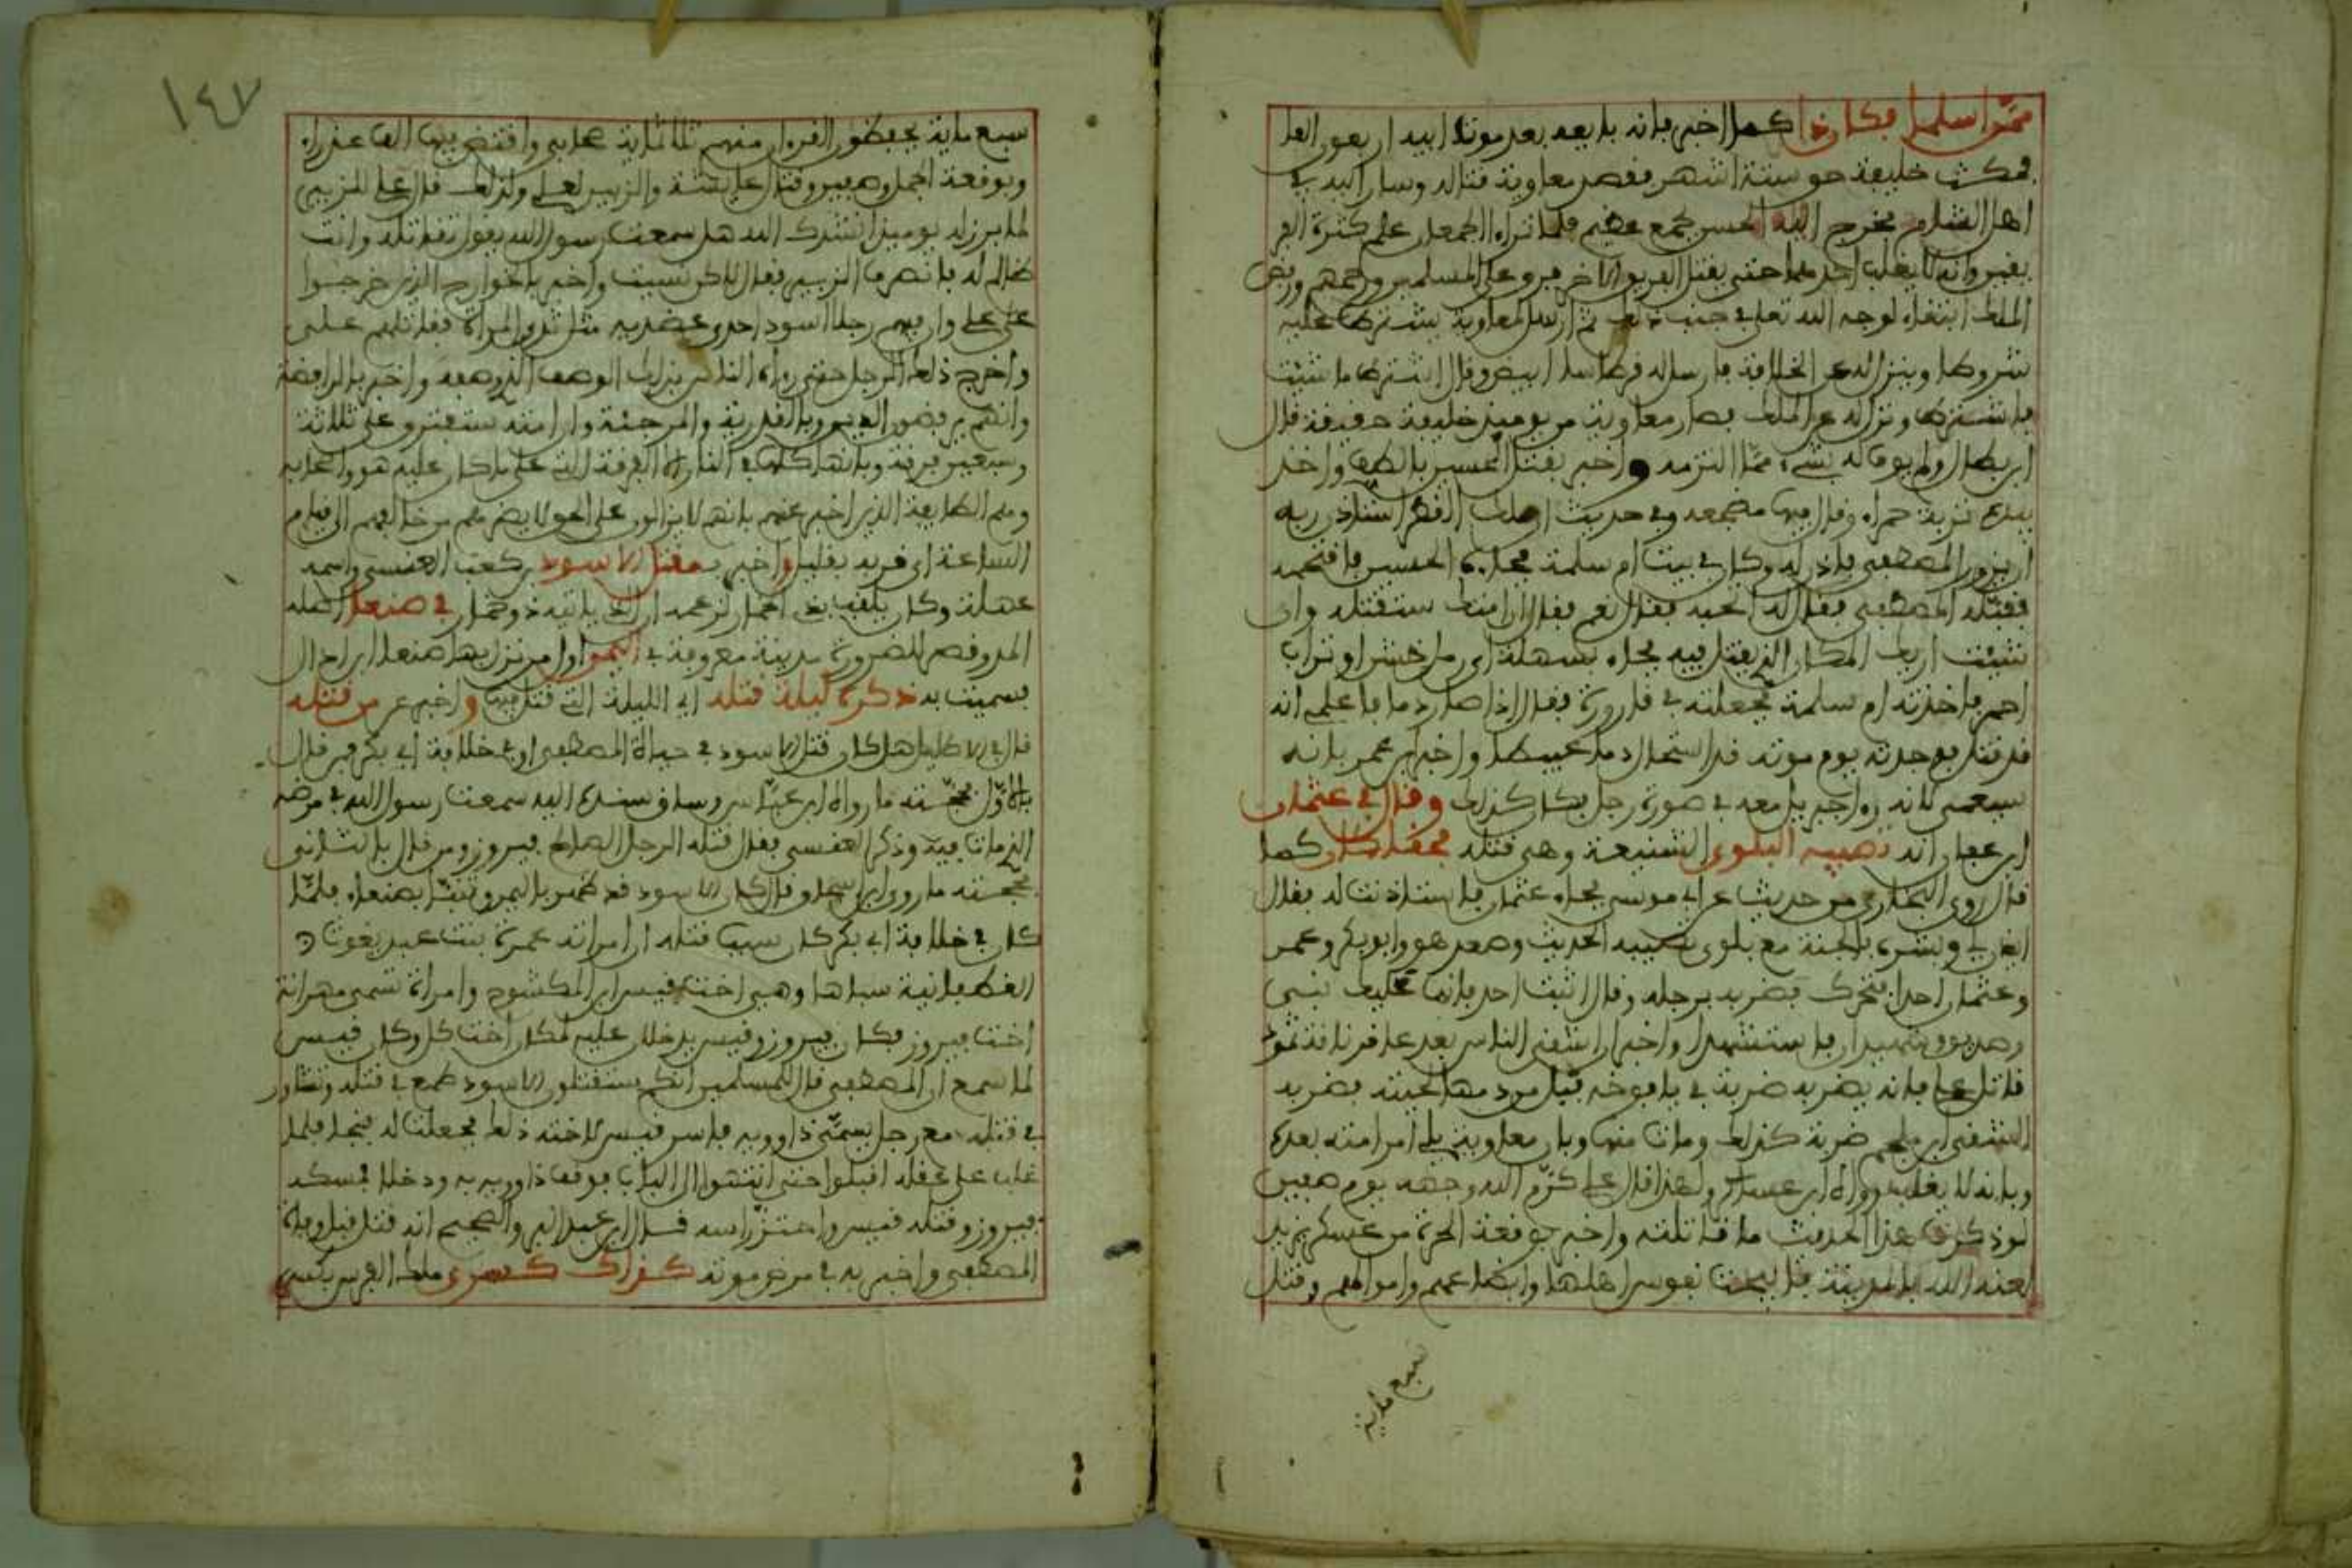 ممن اسلما فكان ذا كما اخبر فانه بايعه بعد موت ابيه اربعون الفا
فمكث خليفة نحو ستة اشهر فقصر معاوية قتاله وسار اليه في
اهل الشام فخرج اليه الحسن بجمع عظيم فلما تراءا الجمعان علم كثرة الفر
يقين وانه لا يغلب احدهما حتى يقتل الفريق الاخر فرق على المسلمين ورحمهم ورفض
الملك ابتغاء لوجه الله تعلى ثم ارسل لمعاوية يشترط عليه
شروطا وينزل له عن الخلافة فارسل له قرطاسا ابيض وقال اشترط ما شئت
فاشترط ونزل له عن الملك فصار معاوية من يومئذ خليفة حقيقة قال
ابن بطال ولم يوف له بشيء مما التزمه واخبر بقتل الحسين بالطف واخذ
بيده تربة حمراء وقال فيها مضجعه وفي حديث ان ملك القطر استاذن ربه
ان يزور المصطفى فاذن له وكان في بيت ام سلمة فجاءه الحسين فاقتحمه
فقبله المصطفى فقال له اتحبه فقال نعم فقال ان امتك ستقتله وان
شئت اريك المكان الذي يقتل فيه فجاء بسهلة اي رمل خشن او تراب
احمر فاخذته ام سلمة فجعلته في قارورة فقال اذا صار دما فاعلمي انه
قد قتل فوجدته يوم موته قد استحال دما عبيطا واخبر ابن عمر بانه
سيعمى لانه راى جبريل معه في صورة رجل فكان كذلك وقال في عثمان
ابن عفان انه تصيبه البلوى الشنيعة وهي قتله فحقا كان كما
قال روى البخاري من حديث عن ابي موسى فجاء عثمان فاستاذنت له فقال
ايذن له وبشره بالجنة مع بلوى تصيبه الحديث وصعد هو وابو بكر وعمر
وعثمان احدا فتحرك فضربه برجله وقال اثبت احد فانما عليك نبي
وصديق وشهيدان فاستشهدا واخبر ان اشقى الناس بعد عاقر ناقة ثمود
قاتل علي فانه يضربه ضربة في يافوخه فتبل من دمها لحيته فضربه
الشقي ابن ملجم ضربة كذلك ومات منها وبان معاوية يلي امر امته بعده
وبانه لا يغلب رواه ابن عساكر ولهذا قال علي كرم الله وجهه يوم صفين
لو ذكرت هذا الحديث ما قاتلته واخبر بوقعة الحرة من عسكر يزيد
لعنه الله بالمدينة فابيحت نفوس اهلها وابضاعهم واموالهم وقتل
سبع ماية
١٤٧
سبع ماية يحفظون القرءان منهم ثلاثماية صحابي وافتض فيها الف عذراء
وبوقعة الجمل وصفين وقتال عايشة والزبير لعلي ولذلك قال علي للزبير
لما برز له يوميذ انشدك الله هل سمعت رسول الله يقول تقاتله وانت
ظالم له فانصرف الزبير فقال لاكن نسيت واخبر بالخوارج الذين خرجوا
على علي وان فيهم رجلا اسود احدى عضديه مثل ثدي المراة فقاتلهم علي
واخرج ذلك الرجل حتى رواه الناس بذلك الوصف الذي وصفه واخبر بالرافضة
وانهم يرفضون الدين وبالقدرية والمرجئة وان امته ستفترق على ثلاثة
وسبعين فرقة وبانها كلها في النار الا الفرقة التي على ما كان عليه هو واصحابه
وهم الطايفة الذين اخبر عنهم بانهم لا يزالون على الحق لا يضرهم من خالفهم الى قيام
الساعة اي قربه بقليل واخبر بمقتل الاسود بن كعب العنسي واسمه
عبهلة وكان يلقب بذي الحمار لزعمه ان الذي ياتيه ذو حمار في صنعا اصله
المد وقصر للضرورة مدينة معروفة في اليمن اول من نزل بها صنعا ابن ازال
فسميت به ذكره ليلة قتله اي الليلة التي قتل فيها واخبر عن من قتله
قال في الاكليل هل كان قتل الاسود في حياة المصطفى او في خلافة ابي بكر فمن قال
بالاول فحجته ما رواه ابن عباس وساق سنده اليه سمعت رسول الله في مرضه
الذي مات فيه وذكر العنسي فقال قتله الرجل الصالح فيروز ومن قال بالثاني
فحجته ما روى ابن اسحاق قال كان الاسود قد ظهر باليمن وتنبا بصنعاء فلما
كان في خلافة ابي بكر كان سبب قتله ان امراته عمرة بنت عبد يغوث
الغطفانية سباها وهي اخت قيس ابن المكشوح وامراة تسمى مهرانة
اخت فيروز فكان فيروز وقيس يدخلان عليه لمكان اخت كل وكان قيس
لما سمع ان المصطفى قال للمسلمين انكم ستقتلون الاسود طمع في قتله وتشاور
في قتله مع رجل يسمى ذاوويه فاسر قيس لاخته ذلك فجعلت له فلما
غلب على عقله اقبلوا حتى انتهوا الى الباب فوقف ذاوويه به ودخل فمسكه
فيروز وقتله قيس واحتز راسه قال ابن عبد البر والصحيح انه قتل قبل وفاة
المصطفى واخبر به في مرض موته كذاك كسرى ملك الفرس بكسر